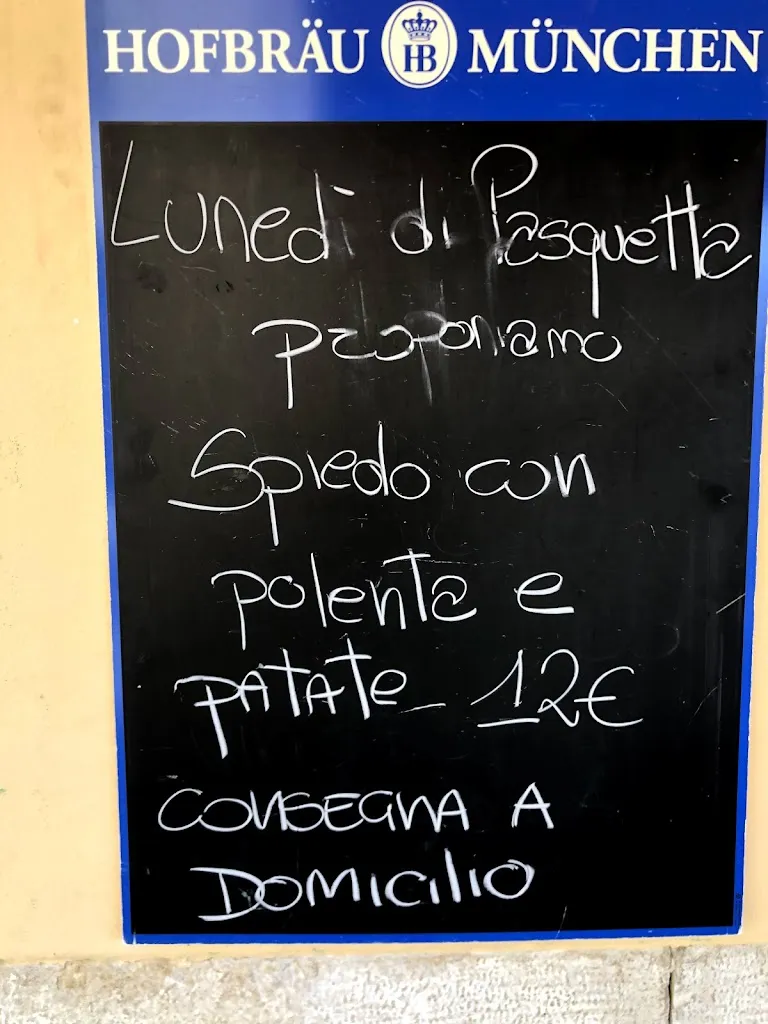 HOFBRÄU HB MÜNCHEN
Lunedì di Pasquetta
proponiamo
Spiedo con
polenta e
patate_ 12€
CONSEGNA A
DOMICILIO